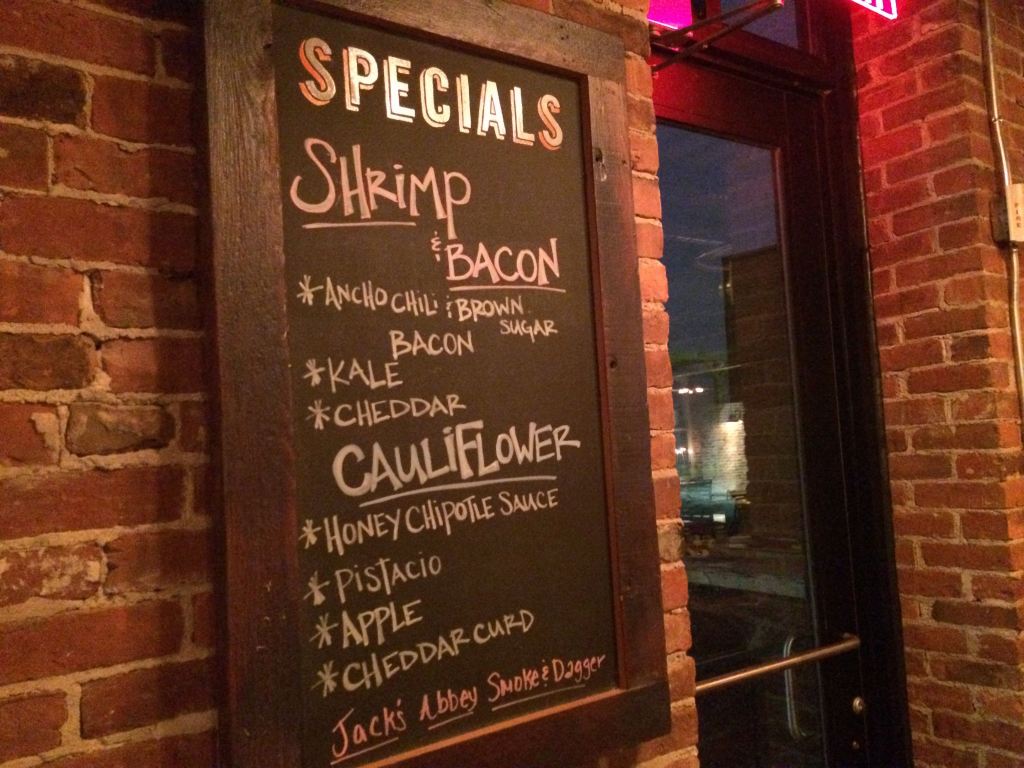 SPECIALS
SHRIMP
& BACON
*ANCHO CHILI & BROWN
SUGAR
BACON
*KALE
*CHEDDAR
CAULIFLOWER
*HONEY CHIPOTLE SAUCE
*PISTACIO
*APPLE
*CHEDDAR CURD
Jack's Abbey Smoke & Dagger